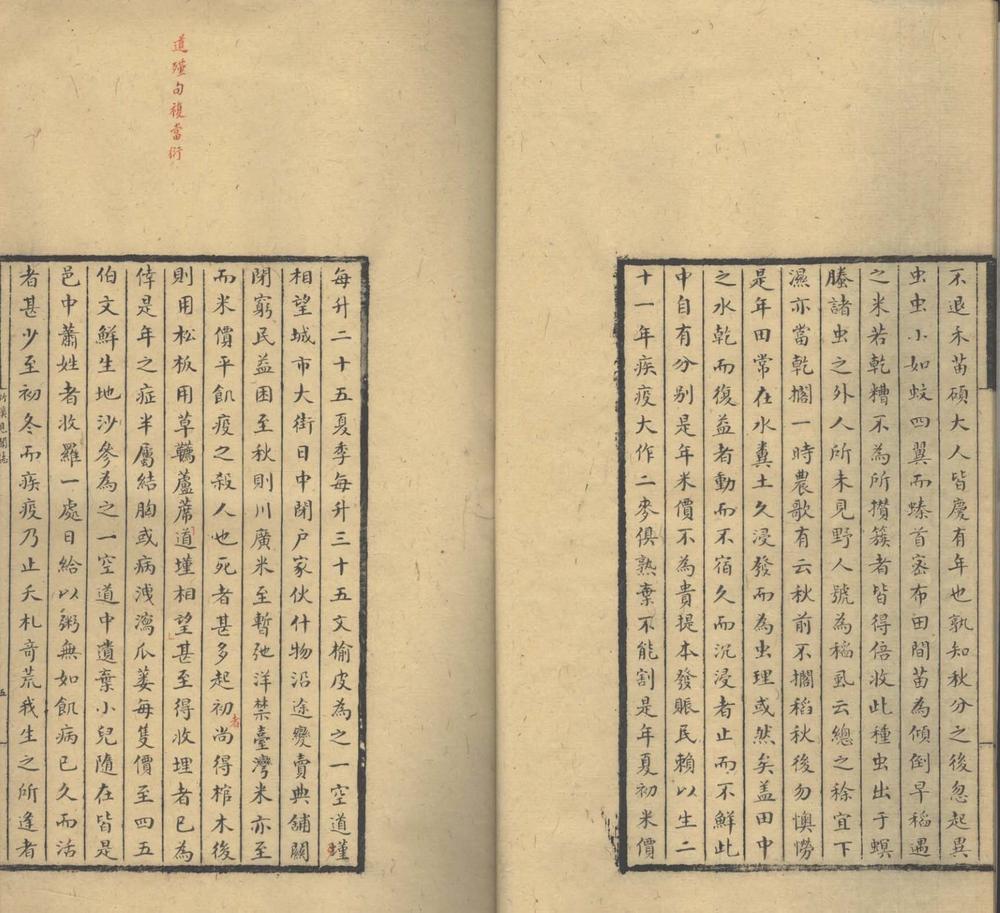 不退禾苗碩大人皆慶有年也孰知秋分之後忽起異
虫虫小如蚊四翼而螓首密布田間苗為傾倒早稻遇
之米若乾糟不為所攢簇者皆得倍收此種虫出于螟
螣諸虫之外人所未見野人號為稻虱云總之稌宜下
濕亦當乾擱一時農歌有云秋前不擱稻秋後勿懊憦
是年田常在水糞土久浸發而為虫理或然矣盖田中
之水乾而復益者動而不宿久而沉浸者止而不鮮此
中自有分别是年米價不為貴提本發賑民賴以生二
十一年疾疫大作二麥俱熟棄不能割是年夏初米價
道殣句複當衍
每升二十五夏季每升三十五文榆皮為之一空道墐
相望城市大街日中閉户家伙什物沿途變賣典舖關
閉窮民益困至秋則川廣米至暫弛洋禁臺灣米亦至
而米價平飢疫之殺人也死者甚多起初尚得棺木後
者
則用松板用草韉蘆蓆道墐相望甚至得收埋者已為
倖是年之症半屬結胸或病洩瀉瓜蔞每隻價至四五
伯文鮮生地沙參為之一空道中遺棄小兒隨在皆是
邑中蕭姓者收羅一處日給以粥無如飢病已久而活
者甚少至初冬而疾疫乃止夭札奇荒我生之所逢者
五